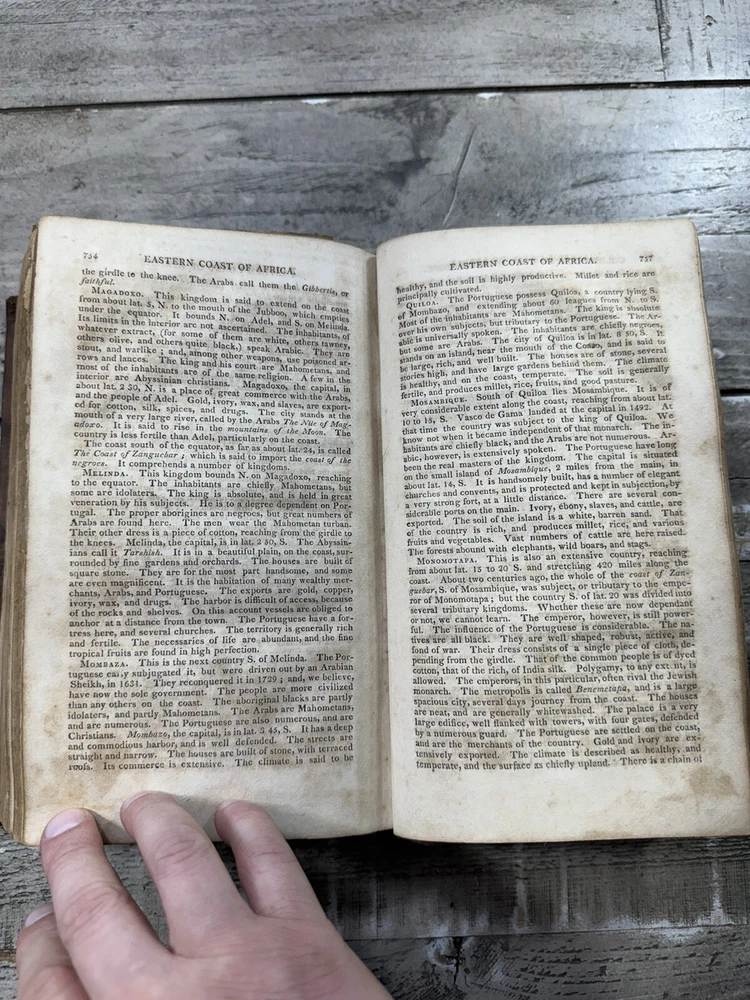 754 EASTERN COAST OF AFRICA.
the girdle to the knee. The Arabs call them the Gibbertis, or
faithful.
MAGADOXO. This kingdom is said to extend on the coast
from about lat. 5, N. to the mouth of the Jubboo, which empties
under the equator. It bounds N. on Adel, and S. on Melinda.
Its limits in the interior are not ascertained. The inhabitants, of
whatever extract, (for some of them are white, others tawney,
others olive, and others quite black,) speak Arabic. They are
stout, and warlike; and, among other weapons, use poisoned ar-
rows and lances. The king and his court are Mahometans, and
most of the inhabitants are of the same religion. A few in the
interior are Abyssinian christians. Magadoxo, the capital, in
about lat. 2 30, N. is a place of great commerce with the Arabs,
and the people of Adel. Gold, ivory, wax, and slaves, are export-
ed for cotton, silk, spices, and drugs. The city stands at the
mouth of a very large river, called by the Arabs The Nile of Mag-
adoxo. It is said to rise in the mountains of the Moon. The
country is less fertile than Adel, particularly on the coast.
The coast south of the equator, as far as about lat. 24, is called
The Coast of Zanguebar; which is said to import the coast of the
negroes. It comprehends a number of kingdoms.
MELINDA. This kingdom bounds N. on Magadoxo, reaching
to the equator. The inhabitants are chiefly Mahometans, but
some are idolaters. The king is absolute, and is held in great
veneration by his subjects. He is to a degree dependent on Por-
tugal. The proper aborigines are negroes, but great numbers of
Arabs are found here. The men wear the Mahometan turban.
Their other dress is a piece of cotton, reaching from the girdle to
the knees. Melinda, the capital, is in lat. 2 50, S. The Abyssin-
ians call it Tarshish. It is in a beautiful plain, on the coast, sur-
rounded by fine gardens and orchards. The houses are built of
square stone. They are for the most part handsome, and some
are even magnificent. It is the habitation of many wealthy mer-
chants, Arabs, and Portuguese. The exports are gold, copper,
ivory, wax, and drugs. The harbor is difficult of access, because
of the rocks and shelves. On this account vessels are obliged to
anchor at a distance from the town. The Portuguese have a for-
tress here, and several churches. The territory is generally rich
and fertile. The necessaries of life are abundant, and the fine
tropical fruits are found in high perfection.
MOMBAZA. This is the next country S. of Melinda. The Por-
tuguese subjugated it, but were driven out by an Arabian
Sheikh, in 1631. They reconquered it in 1729; and, we believe,
have now the sole government. The people are more civilized
than any others on the coast. The aboriginal blacks are partly
idolaters, and partly Mahometans. The Arabs are Mahometans,
and are numerous. The Portuguese are also numerous, and are
Christians. Mombazo, the capital, is in lat. 3 45, S. It has a deep
and commodious harbor, and is well defended. The streets are
straight and narrow. The houses are built of stone, with terraced
roofs. Its commerce is extensive. The climate is said to be
EASTERN COAST OF AFRICA. 757
healthy, and the soil is highly productive. Millet and rice are
principally cultivated.
QUILOA. The Portuguese possess Quiloa, a country lying S.
of Mombazo, and extending about 60 leagues from N. to S.
Most of the inhabitants are Mahometans. The king is absolute
over his own subjects, but tributary to the Portuguese. The Ar-
abic is universally spoken. The inhabitants are chiefly negroes,
but some are Arabs. The city of Quiloa is in lat. 8 50, S. It
stands on an island, near the mouth of the Coavo, and is said to
be large, rich, and well built. The houses are of stone, several
stories high, and have large gardens behind them. The climate
is healthy, and on the coast, temperate. The soil is generally
fertile, and produces millet, rice, fruits, and good pasture.
MOSAMBIQUE. South of Quiloa lies Mosambique. It is of
very considerable extent along the coast, reaching from about lat.
10 to 15, S. Vasco de Gama landed at the capital in 1492. At
that time the country was subject to the king of Quiloa. We
know not when it became independent of that monarch. The in-
habitants are chiefly black, and the Arabs are not numerous. Ar-
abic, however, is extensively spoken. The Portuguese have long
been the real masters of the kingdom. The capital is situated
on the small island of Mosambique, 2 miles from the main, in
about lat. 14, S. It is handsomely built, has a number of elegant
churches and convents, and is protected and kept in subjection, by
a very strong fort, at a little distance. There are several con-
siderable ports on the main. Ivory, ebony, slaves, and cattle, are
exported. The soil of the island is a white, barren sand. That
of the country is rich, and produces millet, rice, and various
fruits and vegetables. Vast numbers of cattle are here raised.
The forests abound with elephants, wild boars, and stags.
MONOMOTAPA. This is also an extensive country, reaching
from about lat. 15 to 20 S. and stretching 420 miles along the
coast. About two centuries ago, the whole of the coast of Zan-
guebar, S. of Mosambique, was subject, or tributary to the empe-
ror of Monomotapa; but the country S. of lat. 20 was divided into
several tributary kingdoms. Whether these are now dependant
or not, we cannot learn. The emperor, however, is still power-
ful. The influence of the Portuguese is considerable. The na-
tives are all black. They are well shaped, robust, active, and
fond of war. Their dress consists of a single piece of cloth, de-
pending from the girdle. That of the common people is of dyed
cotton, that of the rich, of India silk. Polygamy, to any extent, is
allowed. The emperors, in this particular, often rival the Jewish
monarch. The metropolis is called Benemetapa, and is a large
spacious city, several days journey from the coast. The houses
are neat, and are generally whitewashed. The palace is a very
large edifice, well flanked with towers, with four gates, defended
by a numerous guard. The Portuguese are settled on the coast,
and are the merchants of the country. Gold and ivory are ex-
tensively exported. The climate is described as healthy, and
temperate, and the surface as chiefly upland. There is a chain of